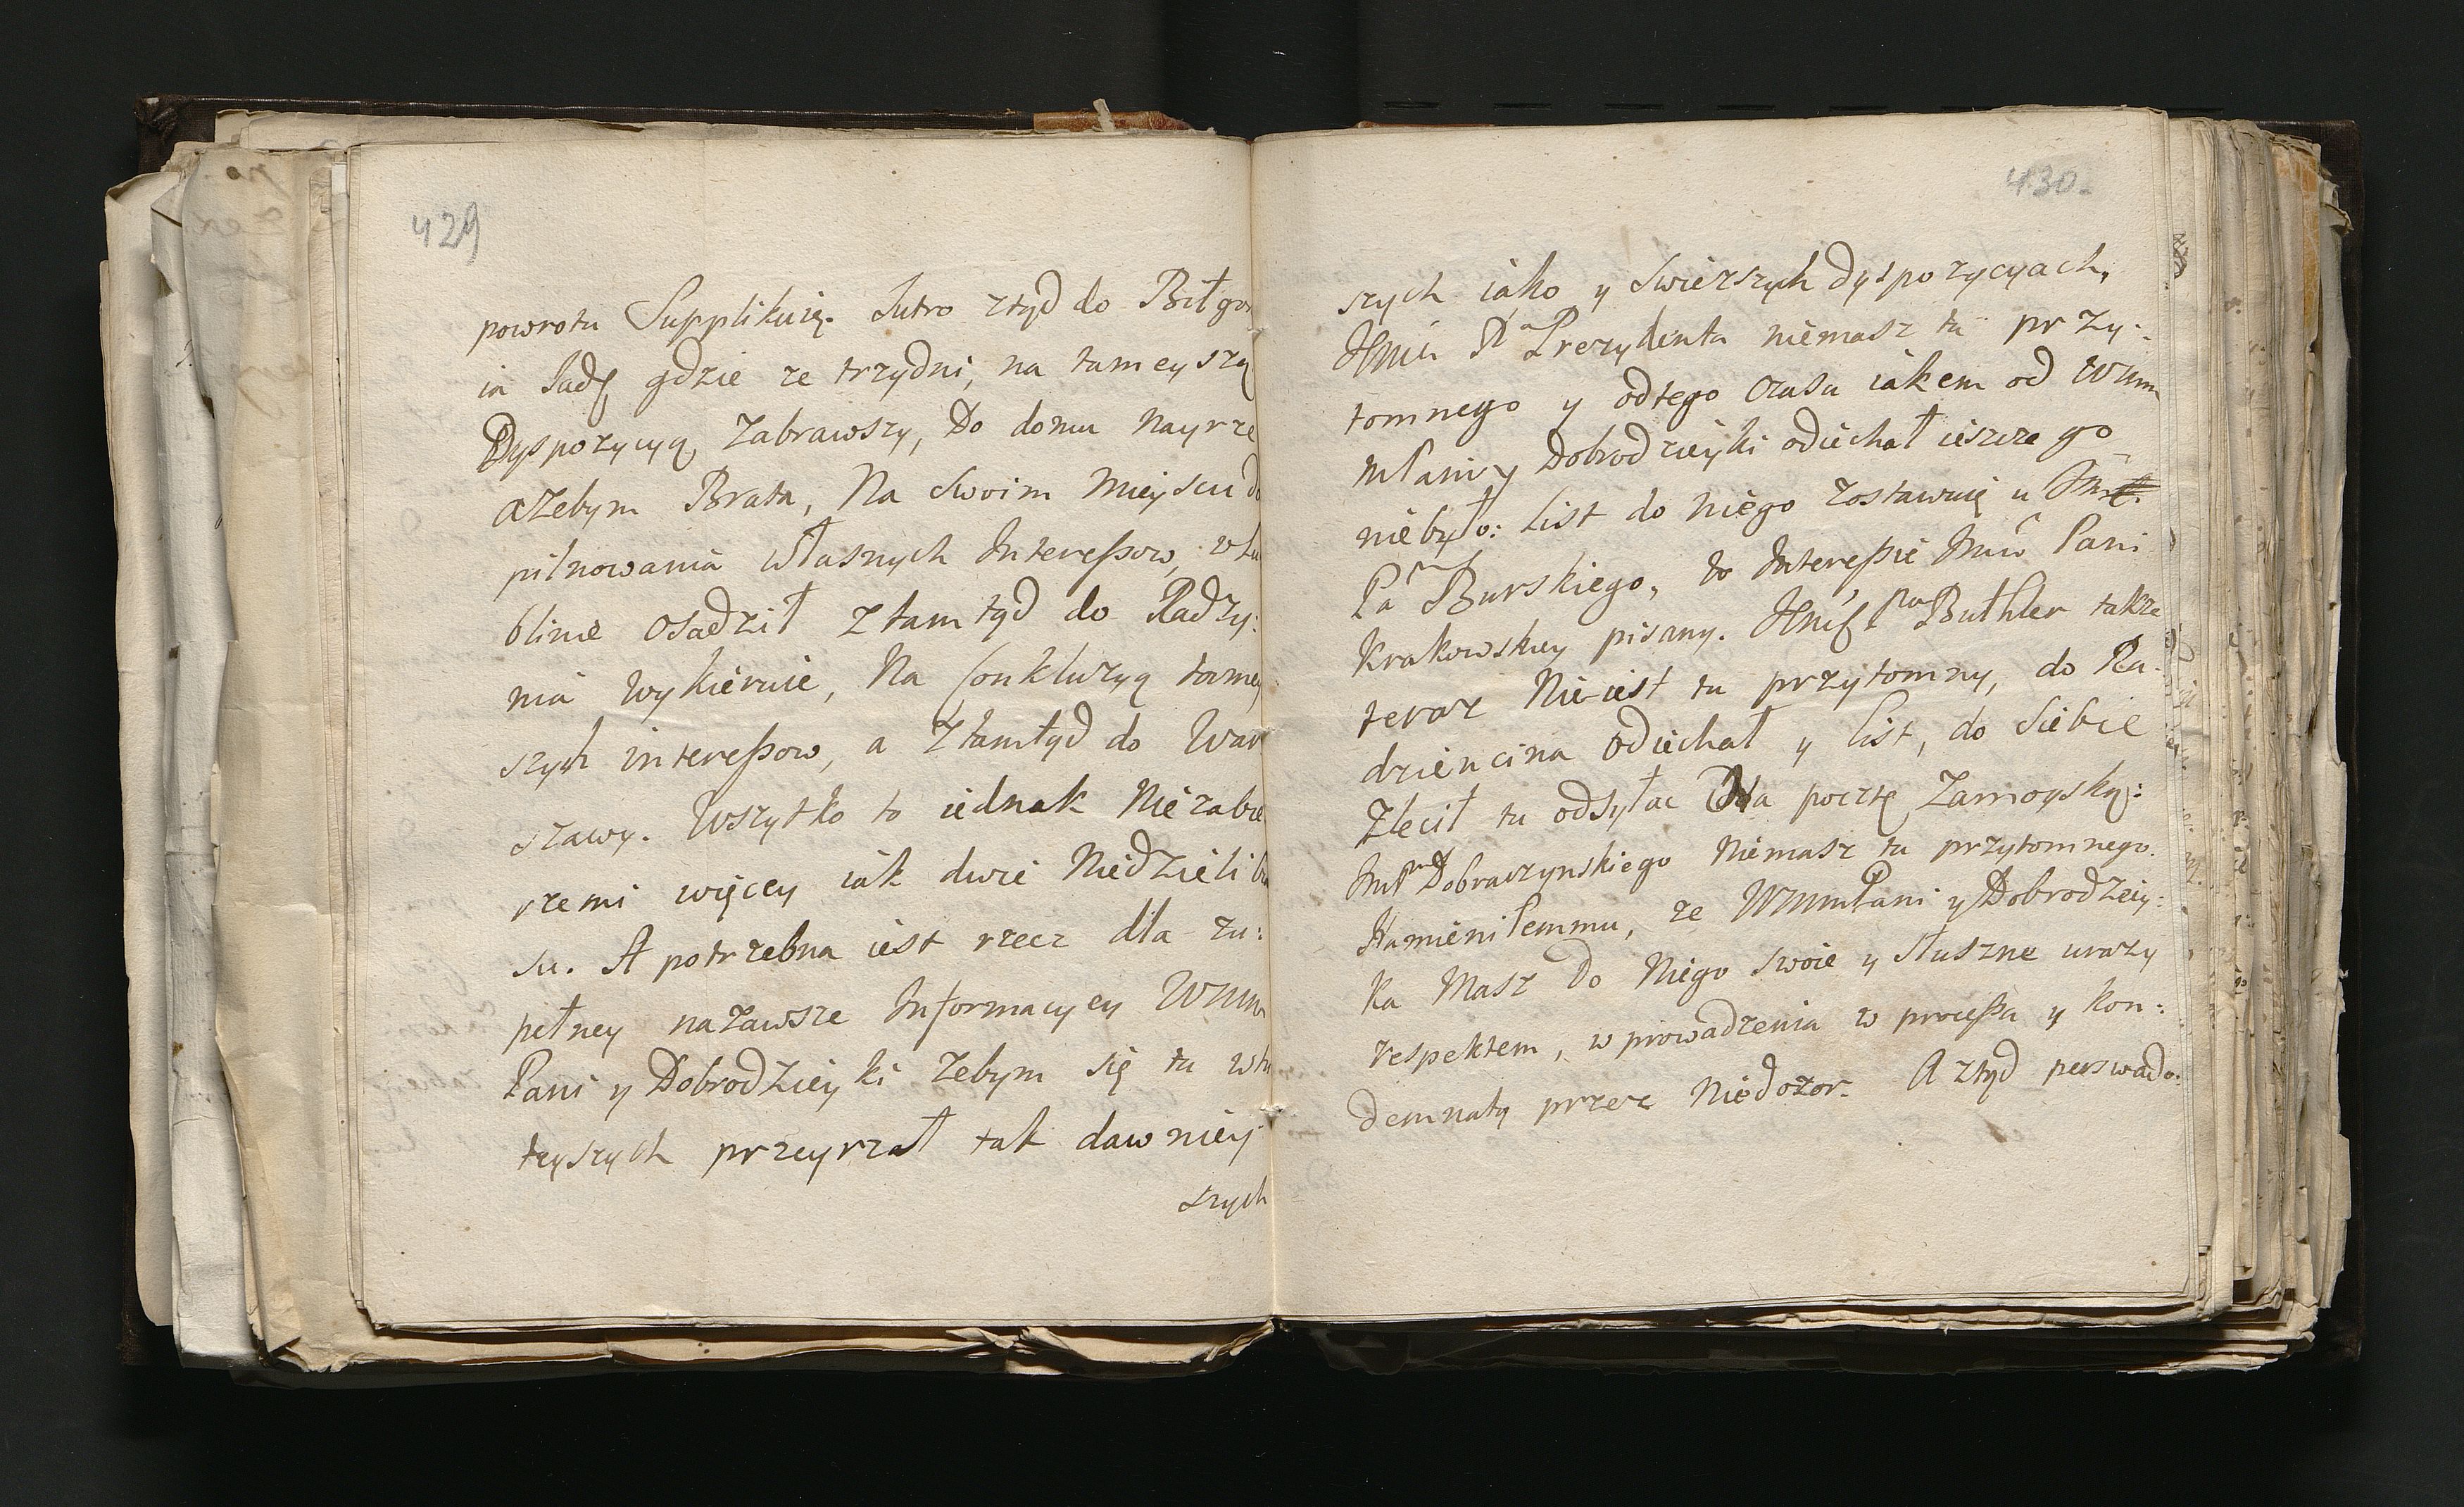 429
powrotu Supplikuię. Jutro ztąd do Biłgor
ia Jadę gdzie ze trzydni, na tameyszą
Dyspozycyą Zabrawszy, Do domu Nayrze
aZebym Brata, Na Swoim Mieyscu do
pilnowania Własnych Interessow, w Lu
blinie Osadził Ztamtąd do Radzy:
nia Wykieruie, Na Conkluzyą tamey
szych interessow, a Ztamtąd do War
szawy. Wszytko to iednak Niezabie
rzemi więcey iak dwie Niedzieli
su. A potrzebna iest rzecz dla zu:
pełney nazawsze Informacyey WMM
Pani y Dobrodzieyki Zebym się tu wtu
teyszych przeyrzał tak dawniey
szych
430.
szych iako y Swieższych dyspozycyach,
Prezydenta niemasz tu przy:
tomnego y odtego Czasu iakem od WMM
MPani y Dobrodzieyki odiechał ieszcze go
niebyło: List do Niego Zostawuię u
Burskiego, w Interessie Pani
Krakowskiey pisany. Buthler także
teraz Nieiest tu przytomny, do Ra:
dziencina Odiechał y List, do Siebie
Zlecił tu odsyłac Na pocztę Zamoyską:
Dobraczynskiego Niemasz tu przytomnego.
Namieniłemmu, ze WMMPani y Dobrodziey:
ka Masz Do Niego Swoie y Słuszne urazy
respektem, wprowadzenia w processa y kon:
demnaty przez Niedozor. A ztąd perswado: